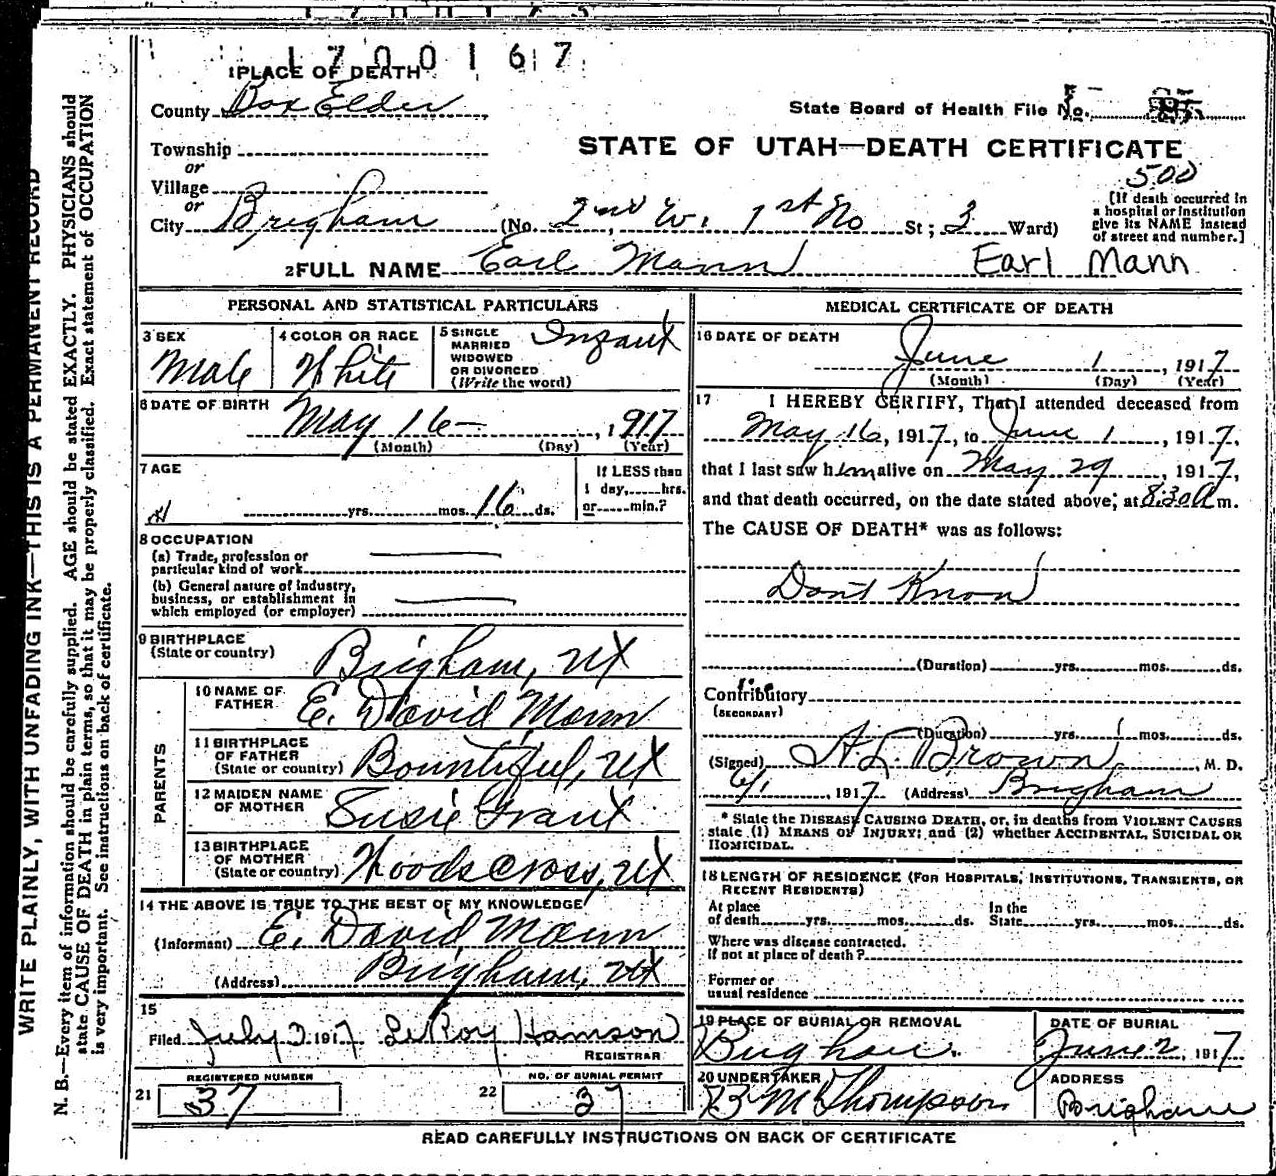 1700167
1 PLACE OF DEATH
County Box Elder
State Board of Health File No.
Township
or
STATE OF UTAH—DEATH CERTIFICATE
Village
or
500
City Brigham (No. 2nd W. 1st No St; 3 Ward)
[If death occurred in
a hospital or institution
give its NAME instead
of street and number.]
2 FULL NAME Earl Mann Earl Mann
PERSONAL AND STATISTICAL PARTICULARS
3 SEX
Male
4 COLOR OR RACE
White
5 SINGLE
MARRIED
WIDOWED
OR DIVORCED
(Write the word)
Infant
6 DATE OF BIRTH
May 16 — , 1917
(Month) (Day) (Year)
7 AGE
yrs. mos. 16 ds.
If LESS than
1 day, hrs.
or min.?
8 OCCUPATION
(a) Trade, profession or
particular kind of work
(b) General nature of industry,
business, or establishment in
which employed (or employer)
9 BIRTHPLACE
(State or country) Brigham, Ut
PARENTS
10 NAME OF
FATHER E. David Mann
11 BIRTHPLACE
OF FATHER
(State or country) Bountiful, Ut
12 MAIDEN NAME
OF MOTHER Susie Grant
13 BIRTHPLACE
OF MOTHER
(State or country) Woods Cross, Ut
14 THE ABOVE IS TRUE TO THE BEST OF MY KNOWLEDGE
(Informant) E. David Mann
(Address) Brigham, Ut
15
Filed July 3 1917 LeRoy Hamson
REGISTRAR
REGISTERED NUMBER
21 37
NO. OF BURIAL PERMIT
22 37
MEDICAL CERTIFICATE OF DEATH
16 DATE OF DEATH
June 1 , 1917
(Month) (Day) (Year)
17 I HEREBY CERTIFY, That I attended deceased from
May 16, 1917, to June 1, 1917,
that I last saw him alive on May 29, 1917,
and that death occurred, on the date stated above, at 8:30 A m.
The CAUSE OF DEATH* was as follows:
Don't Know
(Duration) yrs. mos. ds.
Contributory
(SECONDARY)
(Duration) yrs. mos. ds.
(Signed) A L Brown, M. D.
6/1, 1917 (Address) Brigham
* State the DISEASE CAUSING DEATH, or, in deaths from VIOLENT CAUSES
state (1) MEANS OF INJURY; and (2) whether ACCIDENTAL, SUICIDAL OR
HOMICIDAL.
18 LENGTH OF RESIDENCE (FOR HOSPITALS, INSTITUTIONS, TRANSIENTS, OR
RECENT RESIDENTS)
At place
of death yrs. mos. ds.
In the
State yrs. mos. ds.
Where was disease contracted.
If not at place of death?
Former or
usual residence
19 PLACE OF BURIAL OR REMOVAL
Brigham.
DATE OF BURIAL
June 2, 1917
20 UNDERTAKER
B M Thompson
ADDRESS
Brigham
READ CAREFULLY INSTRUCTIONS ON BACK OF CERTIFICATE
WRITE PLAINLY, WITH UNFADING INK—THIS IS A PERMANENT RECORD
N. B.—Every item of information should be carefully supplied. AGE should be stated EXACTLY. PHYSICIANS should
state CAUSE OF DEATH in plain terms, so that it may be properly classified. Exact statement of OCCUPATION
is very important. See instructions on back of certificate.